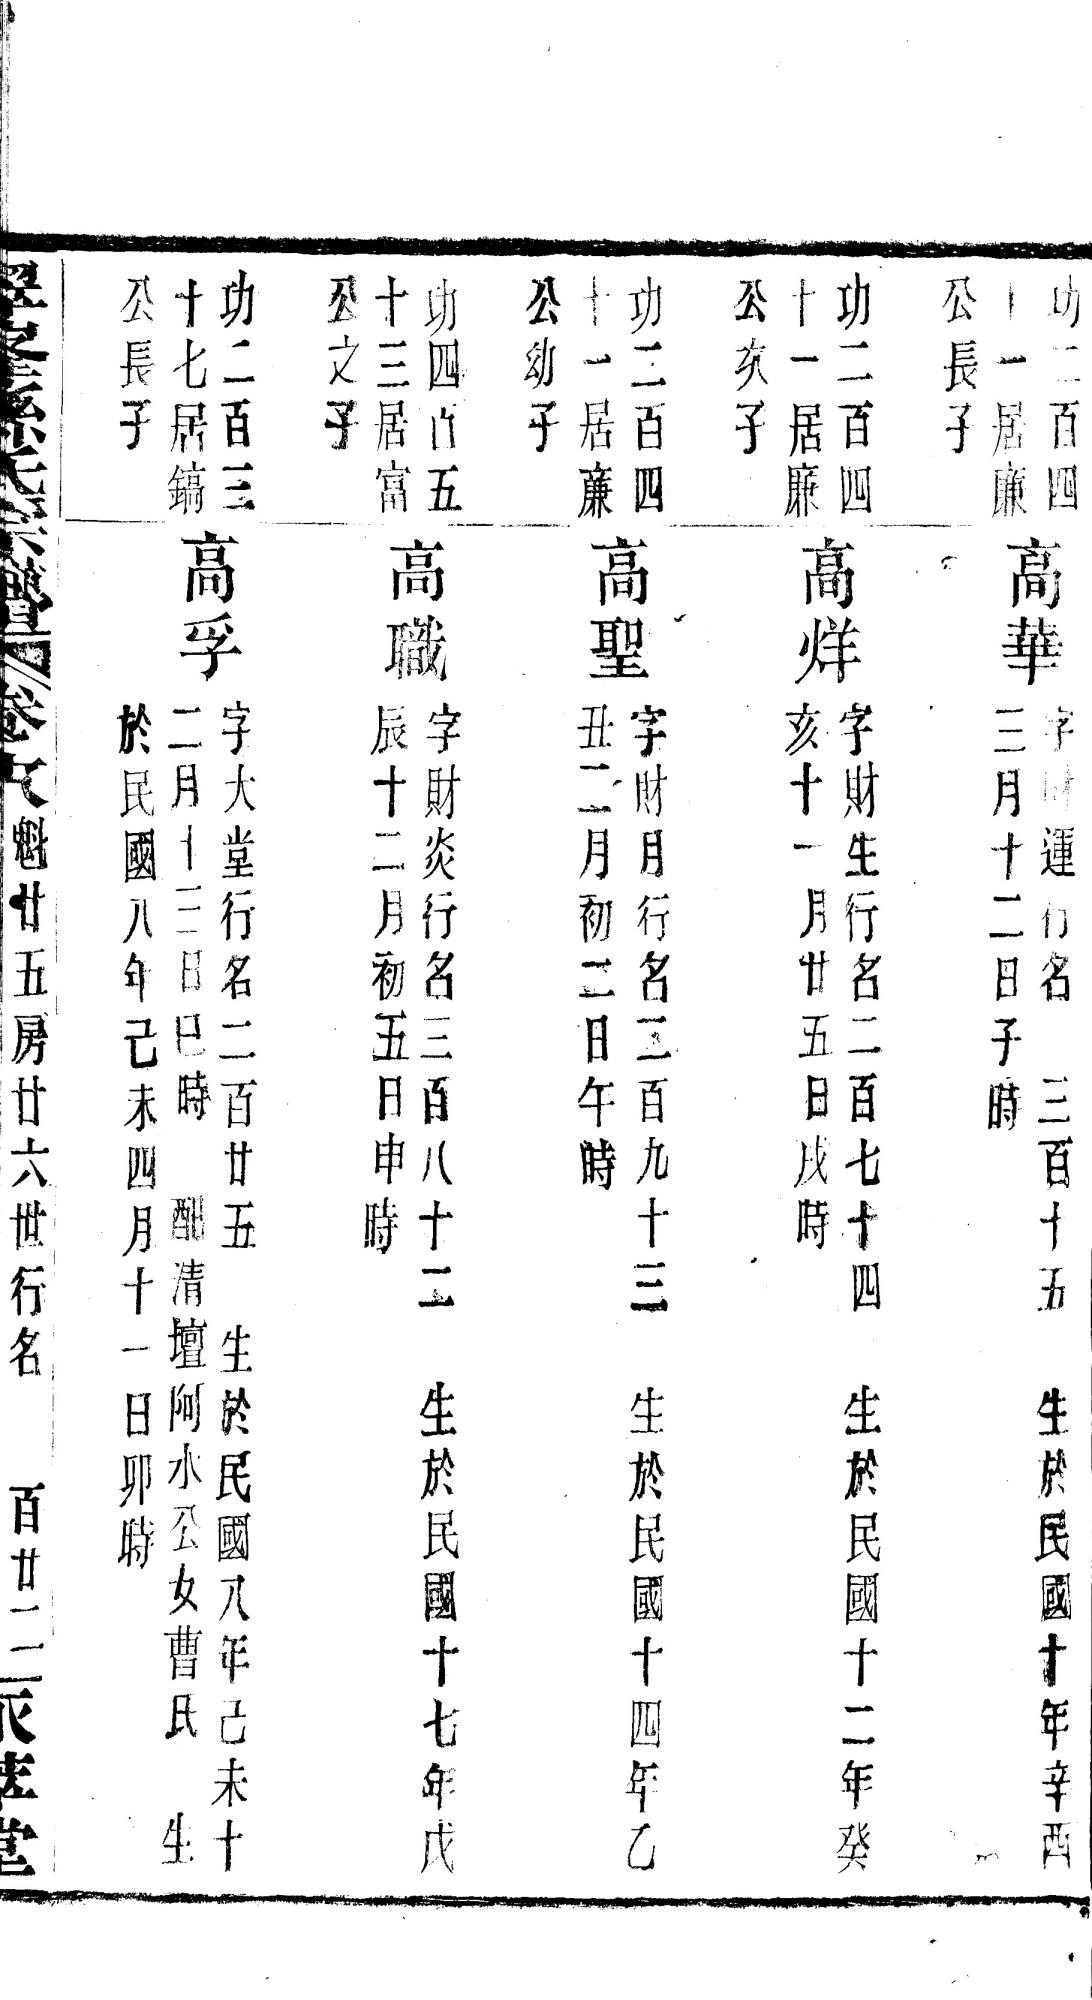 功二百四
十一居廉
公長子
高華
字財運行名 三百十五 生於民國十年辛酉
三月十二日子時
功二百四
十一居廉
公次子
高烊
字財生行名二百七十四 生於民國十二年癸
亥十一月廿五日戌時
功二百四
十一居廉
公幼子
高聖
字財月行名三百九十三 生於民國十四年乙
丑二月初二日午時
功四百五
十三居富
公文子
高職
字財炎行名三百八十二 生於民國十七年戊
辰十二月初五日申時
功二百三
十七居鎬
公長子
高孚
字大堂行名二百廿五 生於民國八年己未十
二月十三日巳時 配清壇阿水公女曹氏 生
於民國八年己未四月十一日卯時
孫氏宗譜 卷 魁廿五房廿六世行名 百廿二 堂